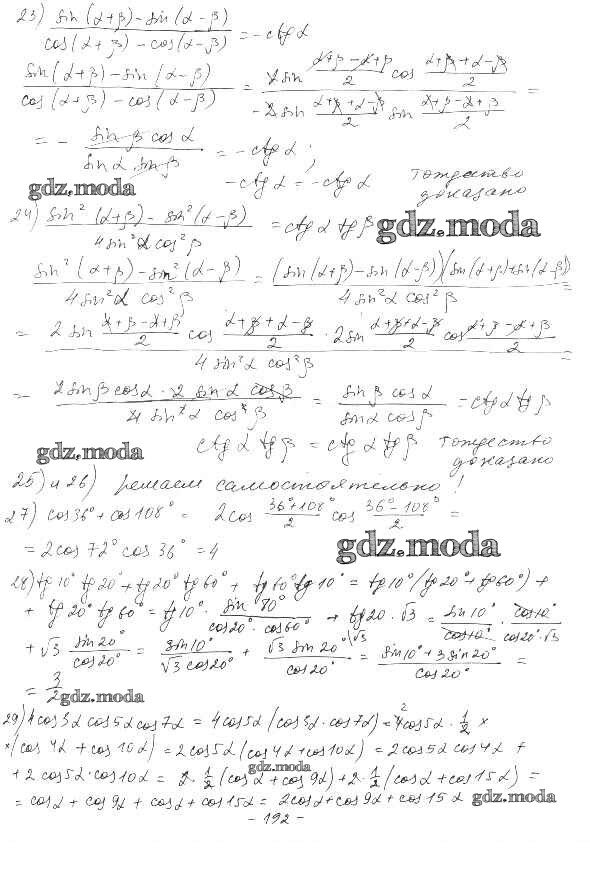 23) (sin(α+β) - sin(α-β)) / (cos(α+β) - cos(α-β)) = -ctg α
(sin(α+β) - sin(α-β)) / (cos(α+β) - cos(α-β)) = (2 sin (α+β-α+β)/2 cos (α+β+α-β)/2) / (-2 sin (α+β+α-β)/2 sin (α+β-α+β)/2) =
= - (sin β cos α) / (sin α sin β) = -ctg α ;
-ctg α = -ctg α тождество доказано
gdz.moda
24) (sin² (α+β) - sin² (α-β)) / (4 sin² α cos² β) = ctg α tg β
gdz.moda
(sin² (α+β) - sin² (α-β)) / (4 sin² α cos² β) = ((sin(α+β) - sin(α-β))(sin(α+β)+sin(α-β))) / (4 sin² α cos² β) =
= (2 sin (α+β-α+β)/2 cos (α+β+α-β)/2 · 2 sin (α+β+α-β)/2 cos (α+β-α+β)/2) / (4 sin² α cos² β) =
= (2 sin β cos α · 2 sin α cos β) / (4 sin² α cos² β) = (sin β cos α) / (sin α cos β) = ctg α tg β
ctg α tg β = ctg α tg β тождество доказано
gdz.moda
25) и 26) решаем самостоятельно!
27) cos 36° + cos 108° = 2 cos (36°+108°)/2 cos (36°-108°)/2 =
= 2 cos 72° cos 36° = 4
gdz.moda
28) tg 10° tg 20° + tg 20° tg 60° + tg 60° tg 10° = tg 10° (tg 20° + tg 60°) +
+ tg 20° tg 60° = tg 10° · sin 80° / (cos 20° · cos 60°) + tg 20 · √3 = sin 10° / cos 10° · cos 10° / (cos 20° · √3)
+ √3 sin 20° / cos 20° = sin 10° / (√3 cos 20°) + √3 sin 20° / cos 20° = (sin 10° + 3 sin 20°) / cos 20° =
= 3/2
gdz.moda
29) 4 cos 3α cos 5α cos 7α = 4 cos 5α (cos 3α · cos 7α) = 4 cos 5α · 1/2 ×
× (cos 4α + cos 10α) = 2 cos 5α (cos 4α + cos 10α) = 2 cos 5α cos 4α +
gdz.moda
+ 2 cos 5α · cos 10α = 2 · 1/2 (cos α + cos 9α) + 2 · 1/2 (cos α + cos 15α) =
= cos α + cos 9α + cos α + cos 15α = 2 cos α + cos 9α + cos 15α
gdz.moda
- 192 -